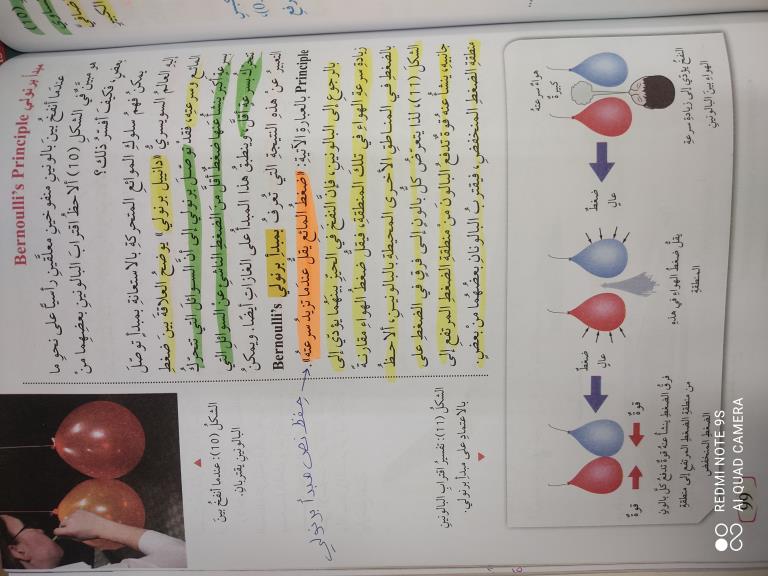 مبدأ برنولي Bernoulli's Principle
عندما أنفخُ بينَ بالونينِ منفوخينِ معلّقينِ رأسيًّا على نحوِ ما
يُبيّنُ في الشكلِ (10) ألاحظُ اقترابَ البالونينِ بعضِهما منْ
بعضٍ، فكيفَ أُفسّرُ ذلكَ؟
يمكنُ فهمُ سلوكِ الموائعِ المتحركةِ بالاستعانةِ بمبدأٍ توصّلَ
إليهِ العالمُ السويسريُّ «دانييل برنولي» يوضّحُ العلاقةَ بينَ ضغطِ
المائعِ وسرعتِهِ، فقدْ توصّلَ برنولي إلى أنَّ السوائلَ التي تتحركُ
بسرعةٍ أكبرَ ينشأُ عنها ضغطٌ أقلُّ من الضغطِ الناشئِ عنِ السوائلِ التي
تتحركُ بسرعةٍ أقلَّ، وينطبقُ هذا المبدأُ على الغازاتِ أيضًا. ويمكنُ
التعبيرُ عنْ هذهِ النتيجةِ التي تُعرفُ بمبدأِ برنولي Bernoulli's
Principle بالعبارةِ الآتيةِ: «ضغطُ المائعِ يقلُّ عندما تزيدُ سرعتُهُ».
بالرجوعِ إلى البالونينِ، فإنَّ النفخَ في الحيّزِ بينَهُما يؤدي إلى
زيادةِ سرعةِ الهواءِ في تلكَ المنطقةِ، فيقلُّ ضغطُ الهواءِ مقارنةً
بالضغطِ في المناطقِ الأخرى المحيطةِ بالبالونينِ، ألاحظُ
الشكلَ (11)، لذا يتعرضُ كلُّ بالونٍ إلى فرقٍ في الضغطِ على
جانبيْهِ، ينشأُ عنهُ قوةٌ تدفعُ البالونَ منْ منطقةِ الضغطِ المرتفعِ إلى
منطقةِ الضغطِ المنخفضِ، فيقتربُ البالونانِ بعضُهُما منْ بعضٍ.
الشكلُ (10): عندما أنفخُ بينَ
البالونينِ يقتربانِ.
حفظ نص مبدأ برنولي
الشكلُ (11): تفسيرُ اقترابِ البالونينِ
بالاعتمادِ على مبدأِ برنولي.
هواءٌ سرعتُهُ
كبيرةٌ
النفخُ يؤدي إلى زيادةِ سرعةِ
الهواءِ بينَ البالونينِ
ضغطٌ
عالٍ
يقلُّ ضغطُ الهواءِ في هذهِ
المنطقةِ
ضغطٌ
عالٍ
قوةٌ
قوةٌ
فرقُ الضغطِ ينشأُ عنهُ قوةٌ تدفعُ كلَّ بالونٍ
منْ منطقةِ الضغطِ المرتفعِ إلى منطقةِ
الضغطِ المنخفضِ
REDMI NOTE 9S
AI QUAD CAMERA